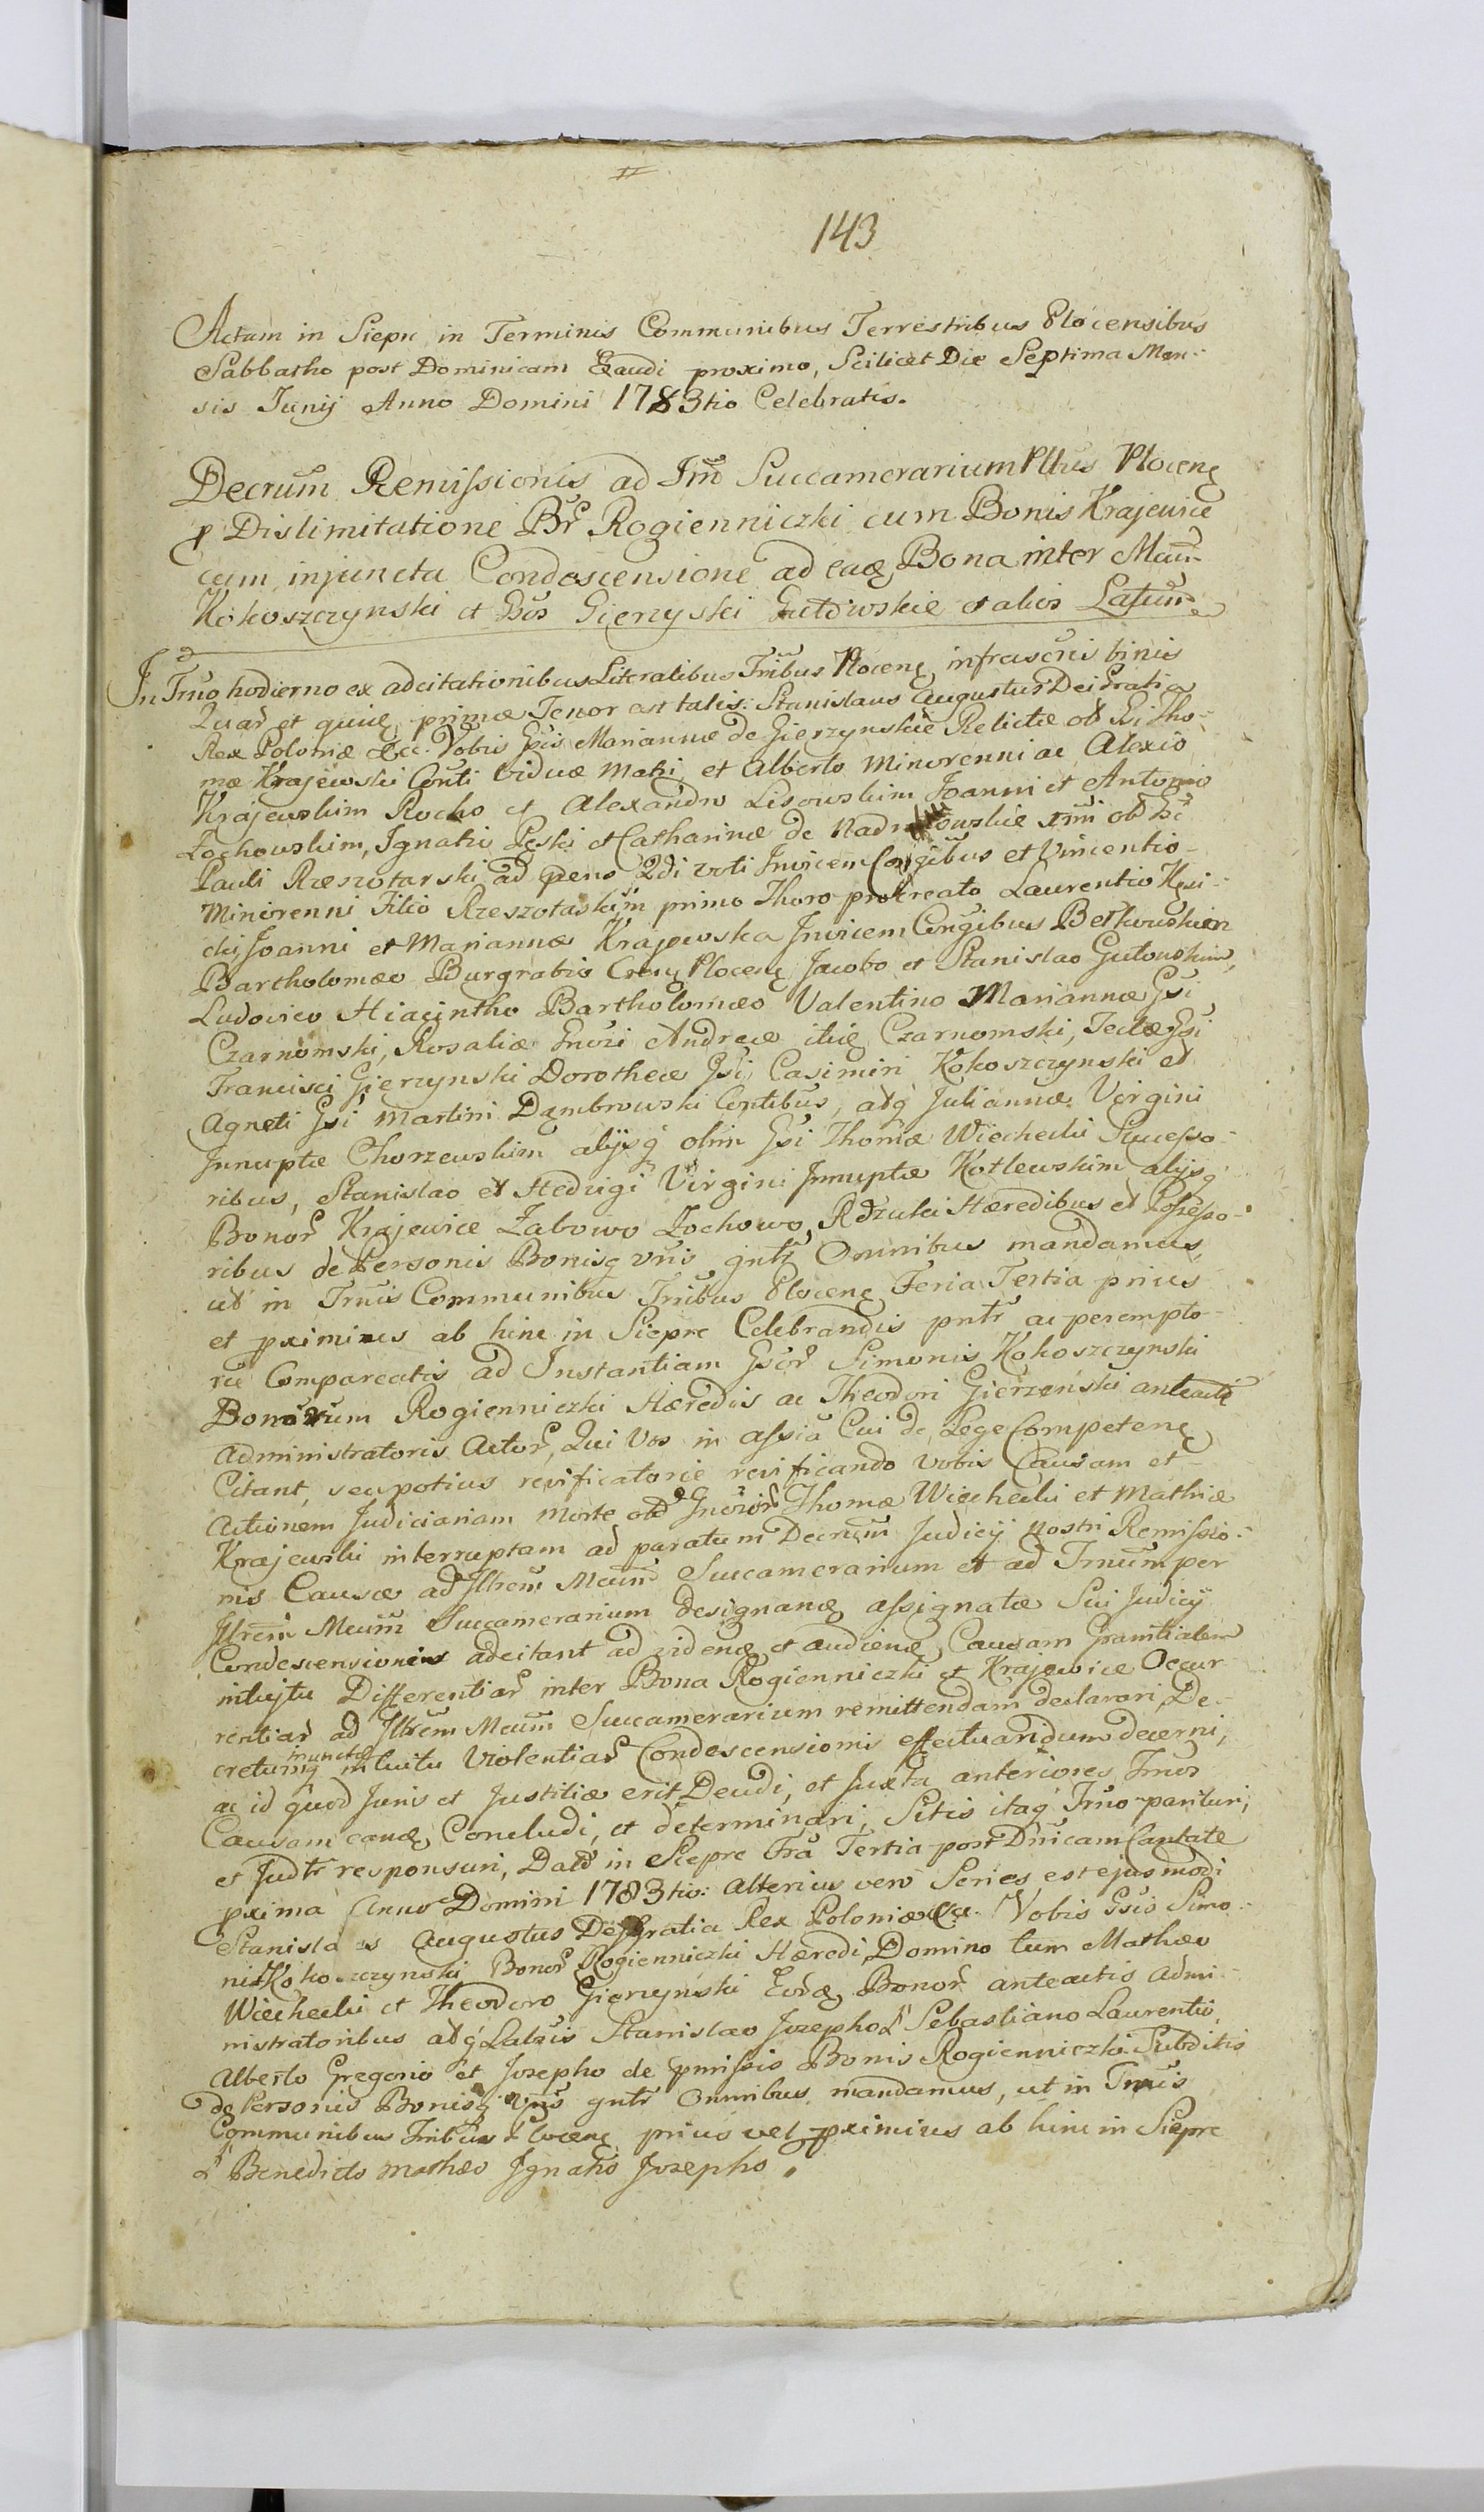 143
Actum in Siepr in Terminis Communibus Terrestribus Plocensibus
Sabbatho post Dominicam Exaudi proximo, Scilicet Die Septima Men-
sis Junij Anno Domini 1783tio Celebratis.
Decrum Remissionis ad Jm̃ Succamerarium Pttus Plocenę
p Dislimitatione Br̃ Rogienniczki cum Bonis Krajewice
cum injuncta Condescensione ad eadę Bona inter Mcum
Kokoszczynski et Gsos Gierzyski Gutowskie et alios Latum
In Trno hodierno ex adcitationibus Literalibus Trribus Plocenę infrascris binis
Quar̃ et quidę primæ Tenor est talis: Stanislaus Augustus Dei Gratia
Rex Poloniæ &c. Vobis Gsis Mariannæ de Gierzynskie Relictæ olr̃ Thо-
mæ Krajewski Conti Viduæ Matri et Alberto Minorenni ac Alexio
Krajewskim Rocho et Alexandro Lisowskim Joanni et Antonio
Żochowskim, Ignatio Pęski et Catharinæ de
Pauli Rzeszotarski ad pens Qdi voti Invicem Congibus et Vincentio
Minorenni Filio Rzeszotarskim primo Thoro prokreato Laurentio Kęsi-
cki Joanni et Mariannæ Krajewska Invicem Congibus Betkowskien
Bartholomæo Burgrabio Crenę Plocenę Jacobo et Stanislao Gutowskim,
Ludovico Hiacintho Bartholomæo Valentino Mariannæ Gsi
Czarnomski, Rosaliæ Gnrzi Andreæ itię Czarnomski, Teclæ Gsi
Francisci Gierzynski Dorotheæ Gsi Casimiri Kokoszczynski et
Agneti Gsi Martini Dąmbrowski Contibus, atq̃ Juliannæ Virgini
Innuptæ Chorzewskim alijsq̃ olim Gsi Thomæ Wiechecki Successo-
ribus, Stanislao et Hedvigi Virgini Innuptæ Kotlewskim alijsq̃
Bonor̃ Krajewice Żabowo Żochowo, Rdzuki Hæredibus et Possesso-
ribus de Personis Bonisq̃ vris gntr̃ Omnibus mandamus,
ut in Trnis Communibus Trribus Plocenę Feria Tertia prius
et pximius ab hinc in Siepre Celebrandis pntr̃ ac perempto-
rie Compareatis ad Instantiam Gsor̃ Simonis Kokoszczynski
Bonorum Rogienniczki Hæredis ac Theodori Gierzenski anteactę
Administratoris Actor̃, Qui Vos in assia Cui de Lege Competenę
Citant, seu potius revificatorie revificando vobis Causam et
Actionem Judiciariam Morte olr̃ Gnrzor̃ Thomæ Wiechecki et Mathiæ
Krajewski interruptam ad paratum Decrum Judicij Nostri Remissio-
nis Causæ ad Jllrem Mcum Succamerarium et ad Trnum per
Jllrem Mcum Succamerarium designanę assignatæ Sui Judicij
Condescensionis adcitant ad videnę et audienę Causam Granitialem
intujtu Differentiar̃ inter Bona Rogienniczki et Krajewice Occur
rentiar̃ ad Jllrem Mcum Succamerarium remittendam declarari, De-
cretumq̃ injunctæ intuitu Violentiar̃ Condescensionis effectuandum decerni,
ac id quod Juris et Justitiæ erit Deudi, et juxta anteriores Trnos
Causam eandę Concludi, et determinari, Sitis itaq̃ Trno parituri,
et Judtr̃ responsuri, Datr̃ in Siepre Fra Tertia post Dnicam Cantate
pxima Anno Domini 1783tio: Alterius vero Series est ejusmodi
Stanislaus Augustus Dei Gratia Rex Poloniæ &c. Vobis Gsis Simo-
ni Kokoszczynski Bonor̃ Rogienniczki Hæredi, Domino tum Mathæo
Wiechecki et Theodoro Gierzynski Eordę Bonor̃ anteactis Admi-
nistratoribus atq̃ Labzis Stanislao Josepho ♂ Sebastiano Laurentio,
Alberto Gregorio et Josepho de pmissis Bonis Rogienniczki Subditis
de Personis Bonisq̃ vris gntr̃ Omnibus mandamus, ut in Trnis
Communibus Trribus Plocenę prius vel pximius ab hinc in Siepre
♂ Benedicto Mathæo Ignatio Josepho.